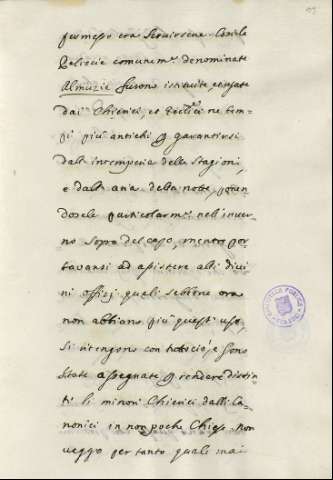 permesso era servirsene. Con le
Pelliccie comunem.e denominate
Almuzie furono istituite, ed usate
dai Chierici, et Eccl.ci ne tem=
pi più antichi p garantirsi
dall intemperie delle stagioni,
e dall aria della notte, poten
dosele particolarm.e nell'inver=
no sopra del capo, mentre por
tavansi ad assistere alli divi
ni offizj quali sebbene ora
non abbiano più questi usi,
si ritengono con tuttociò, e sono
state assegnate p rendere distin=
ti li minori Chierici dalli Ca=
nonici in non poche Chiese. Non
veggo per tanto quali mai